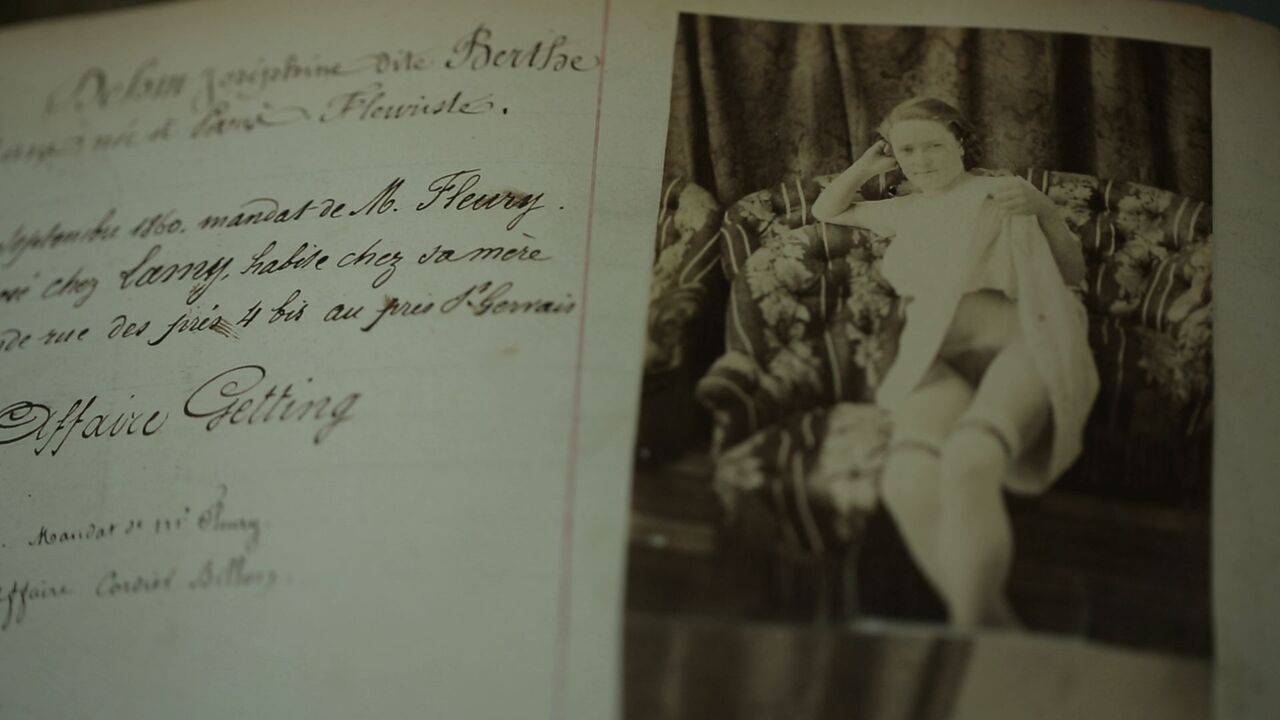 Joséphine dite Berthe
née à Paris Fleuriste.
Septembre 1860. mandat de M. Fleury.
chez Lamy, habite chez sa mère
rue des prés 4 bis au près St Gervais
Affaire Getting
Mandat de Mr Fleury.
Affaire